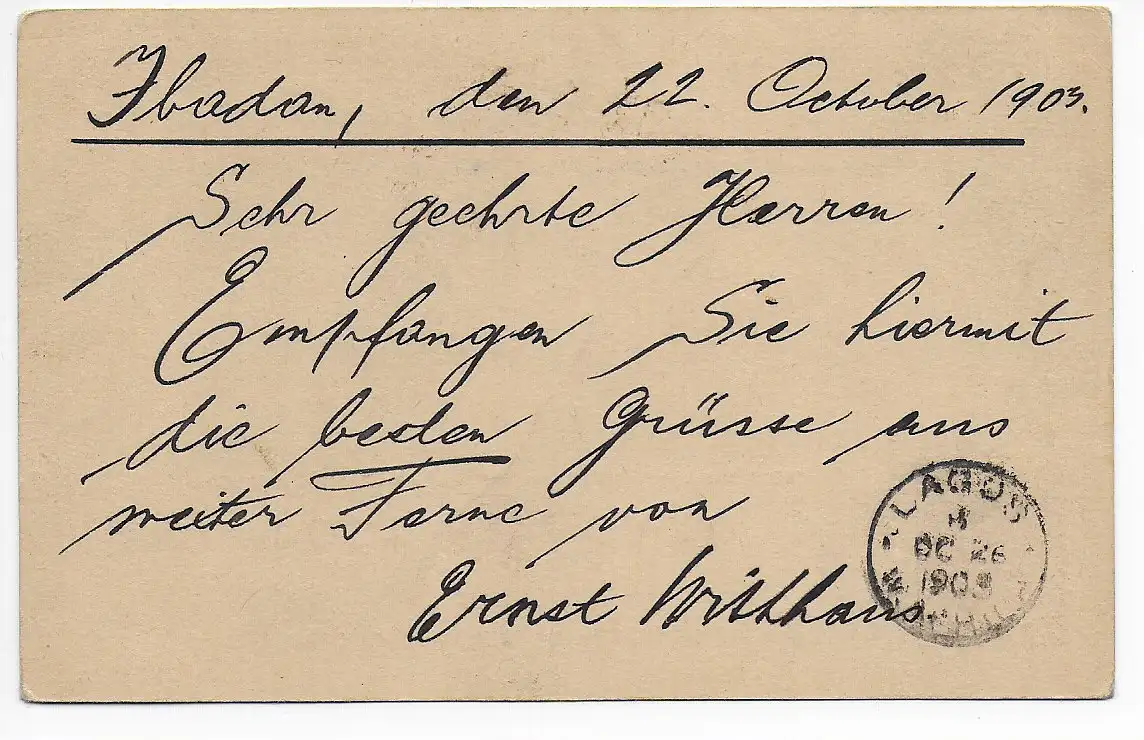 Ibadan, den 22. October 1903.
Sehr geehrte Herren!
Empfangen Sie hiermit
die besten Grüsse aus
weiter Ferne von
Ernst Witthaus
LAGOS
OC 26
1903